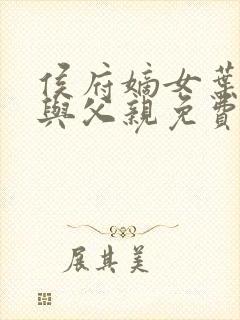 侯府嫡女葉
與父親免費
展其美